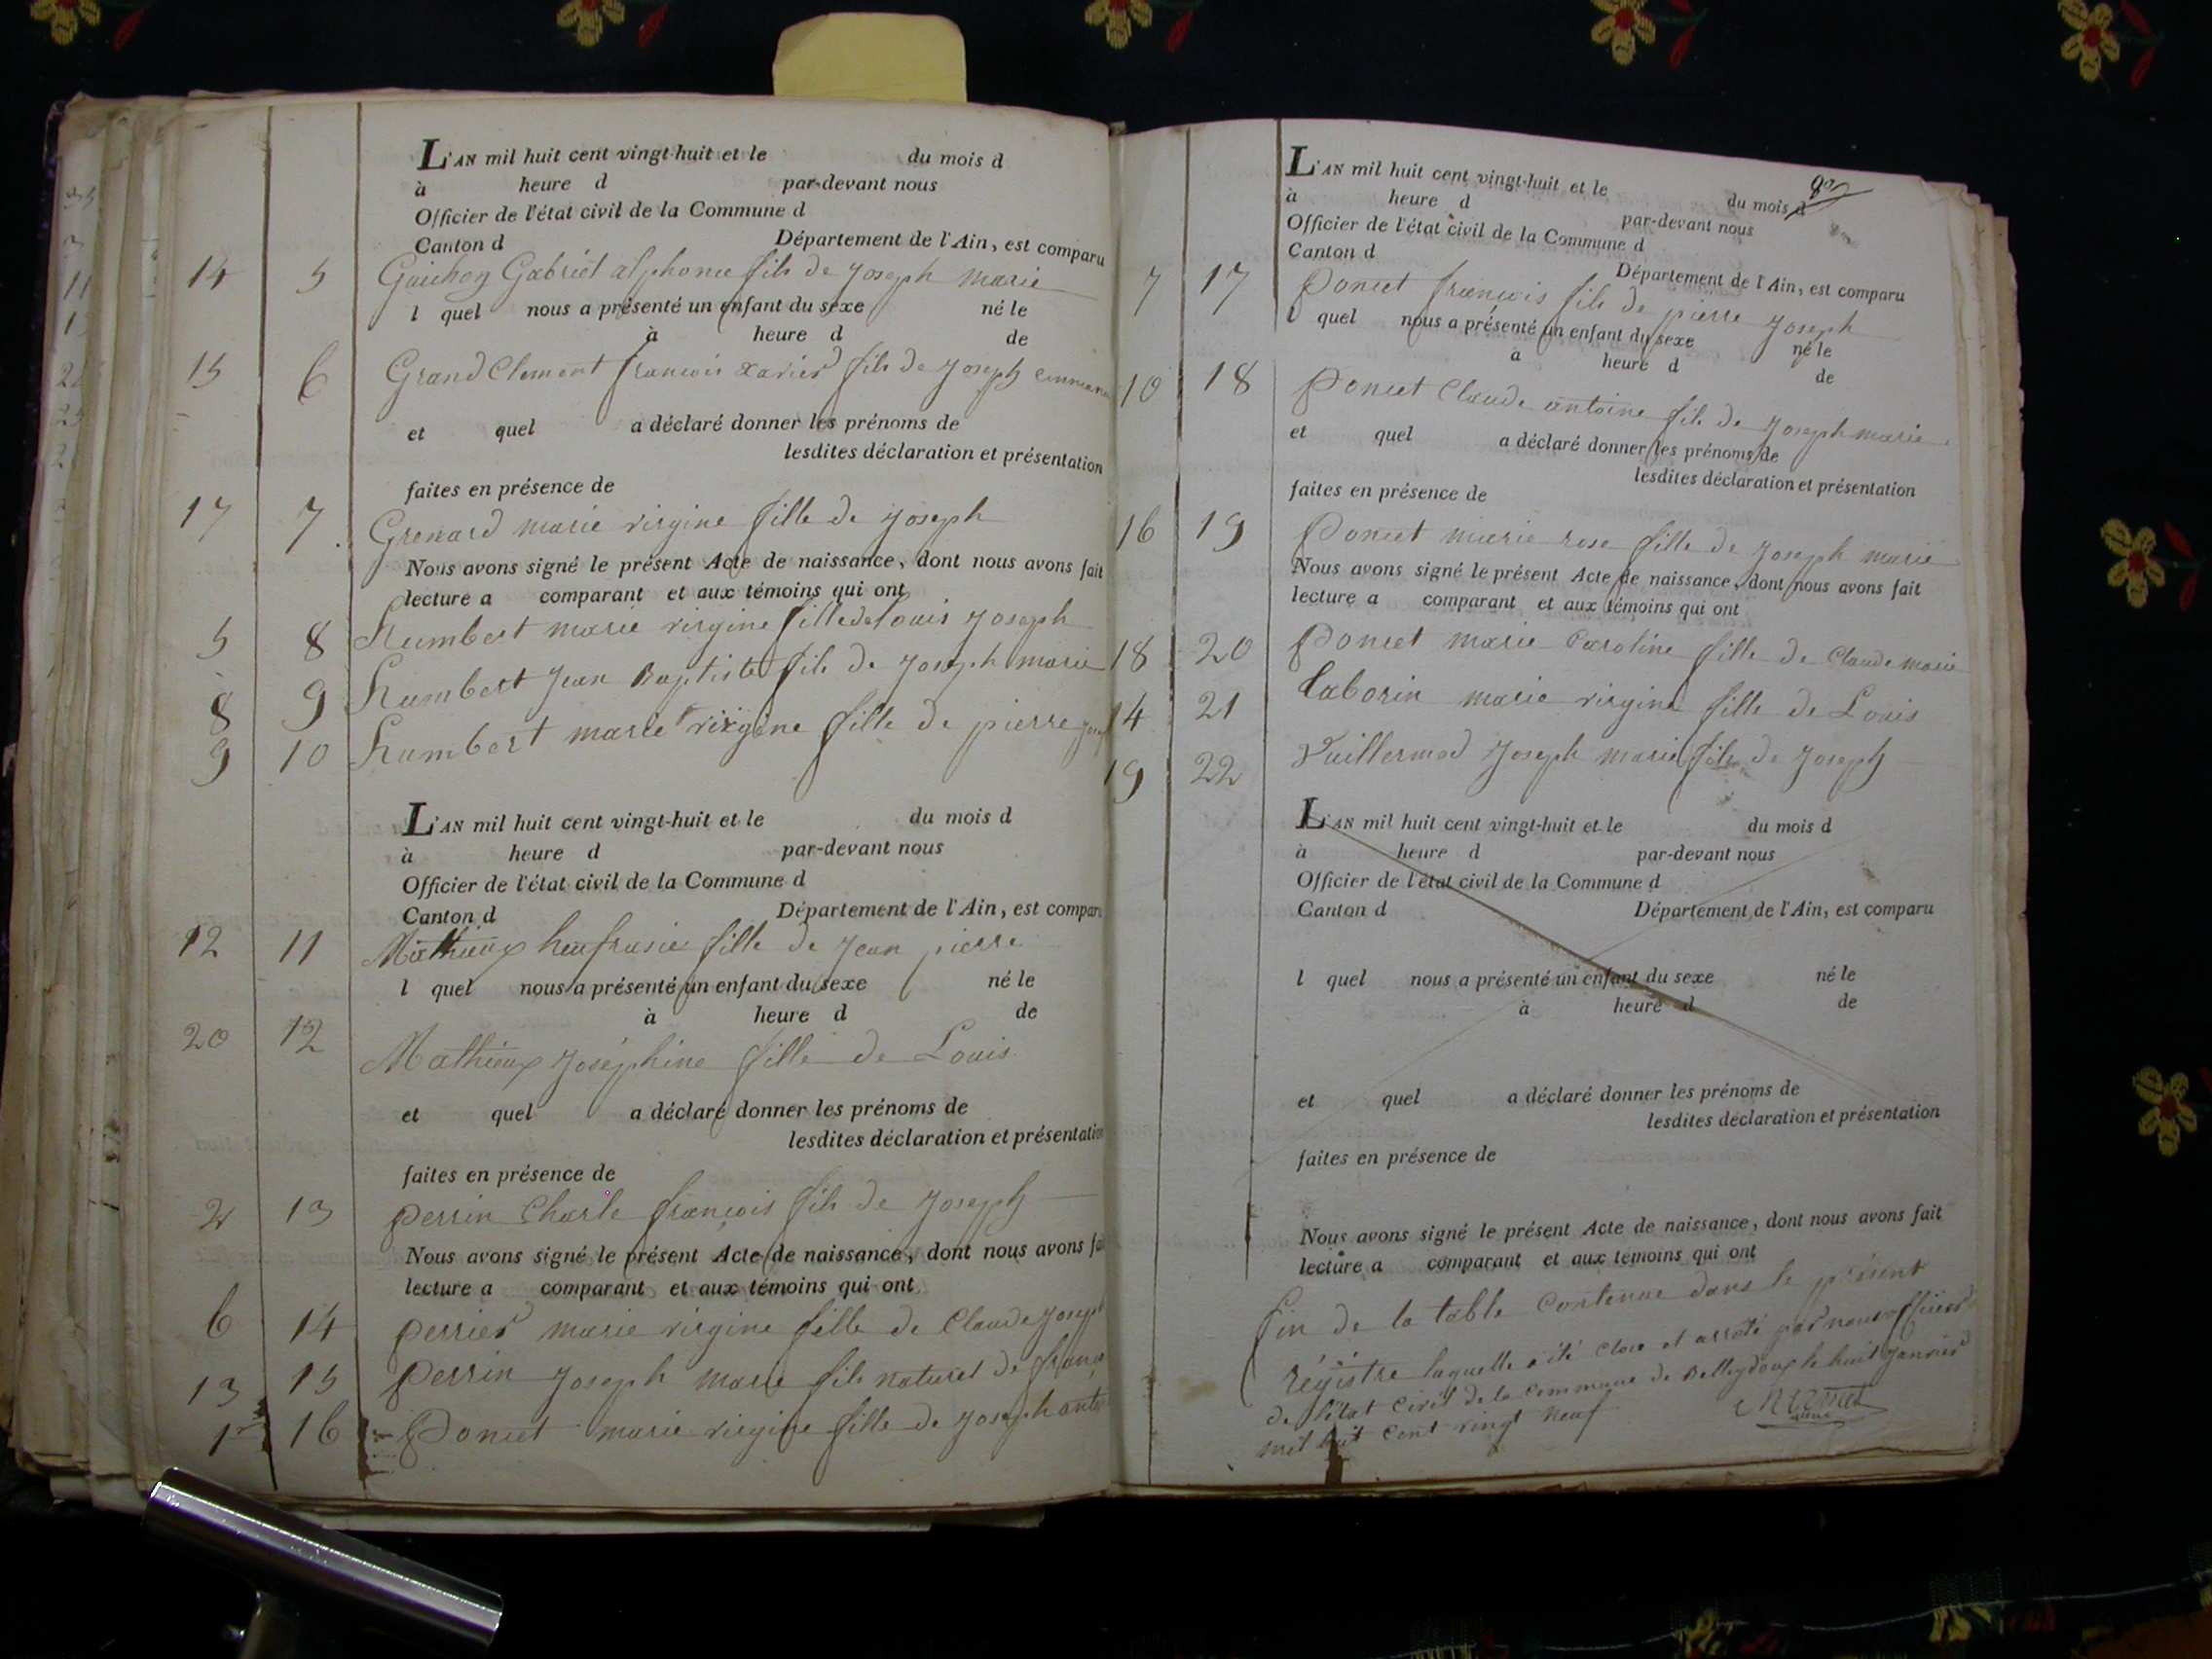 L'AN mil huit cent vingt-huit et le du mois d
à heure d par-devant nous
Officier de l'état civil de la Commune d
Canton d Département de l'Ain, est comparu
14 5 Gabriel alphonse fils de joseph marie
l quel nous a présenté un enfant du sexe né le
à heure d de
15 6 Grand Clement françois xavier fils de joseph
et quel a déclaré donner les prénoms de
lesdites déclaration et présentation
faites en présence de
17 7 Grenard marie virgine fille de joseph
Nous avons signé le présent Acte de naissance, dont nous avons fait
lecture a comparant et aux témoins qui ont
5 8 humbert marie virgine fille de louis joseph
8 9 humbert jean Baptiste fils de joseph marie
9 10 humbert marie virgine fille de pierre
L'AN mil huit cent vingt-huit et le du mois d
à heure d par-devant nous
Officier de l'état civil de la Commune d
Canton d Département de l'Ain, est comparu
12 11 Mathieux heufrasie fille de jean pierre
l quel nous a présenté un enfant du sexe né le
à heure d de
20 12 Mathieux joséphine fille de Louis
et quel a déclaré donner les prénoms de
lesdites déclaration et présentation
faites en présence de
2 13 perrin Charle françois fils de joseph
Nous avons signé le présent Acte de naissance, dont nous avons fai
lecture a comparant et aux témoins qui ont
6 14 perrier marie virgine fille de Claude joseph
13 15 perrin joseph marie fils naturel de
1er 16 Poncet marie virgine fille de joseph
L'AN mil huit cent vingt-huit et le du mois d
à heure d par-devant nous
Officier de l'état civil de la Commune d
Canton d Département de l'Ain, est comparu
7 17 Poncet françois fils de pierre joseph
l quel nous a présenté un enfant du sexe né le
à heure d de
10 18 Poncet Claude antoine fils de joseph marie
et quel a déclaré donner les prénoms de
lesdites déclaration et présentation
faites en présence de
16 19 Poncet marie rose fille de joseph marie
Nous avons signé le présent Acte de naissance, dont nous avons fait
lecture a comparant et aux témoins qui ont
18 20 Poncet marie Caroline fille de Claude marie
14 21 taborin marie virgine fille de Louis
19 22 Vuillermod joseph marie fils de joseph
L'AN mil huit cent vingt-huit et le du mois d
à heure d par-devant nous
Officier de l'état civil de la Commune d
Canton d Département de l'Ain, est comparu
l quel nous a présenté un enfant du sexe né le
à heure d de
et quel a déclaré donner les prénoms de
lesdites déclaration et présentation
faites en présence de
Nous avons signé le présent Acte de naissance, dont nous avons fait
lecture a comparant et aux témoins qui ont
fin de la table contenue dans le présent
régistre laquelle a été close et arrêté par nous officier
de l'état civil de la commune de Belleydoux le huit janvier
mil huit cent vingt neuf